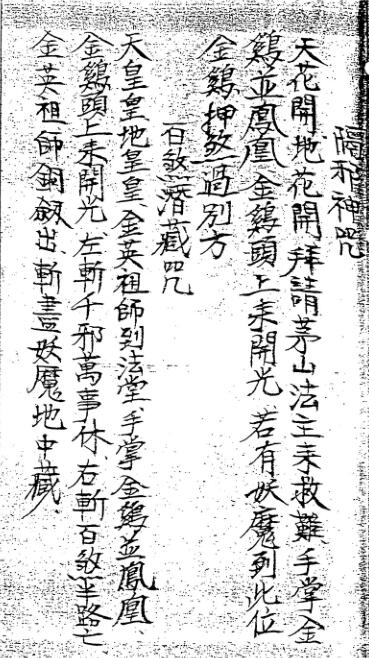 隔邪神咒
天花開地花開拜請茅山法主來救難、手掌金
鷄並鳳凰、金鷄頭上來開光、若有妖魔到此位
金鷄押煞過別方
百煞潛藏咒
天皇皇地皇皇、金英祖師到法堂、手掌金鷄並鳳凰、
金鷄頭上來開光、左斬千邪萬事休、右斬百煞半路亡
金英祖師銅劔出、斬盡妖魔地中藏、